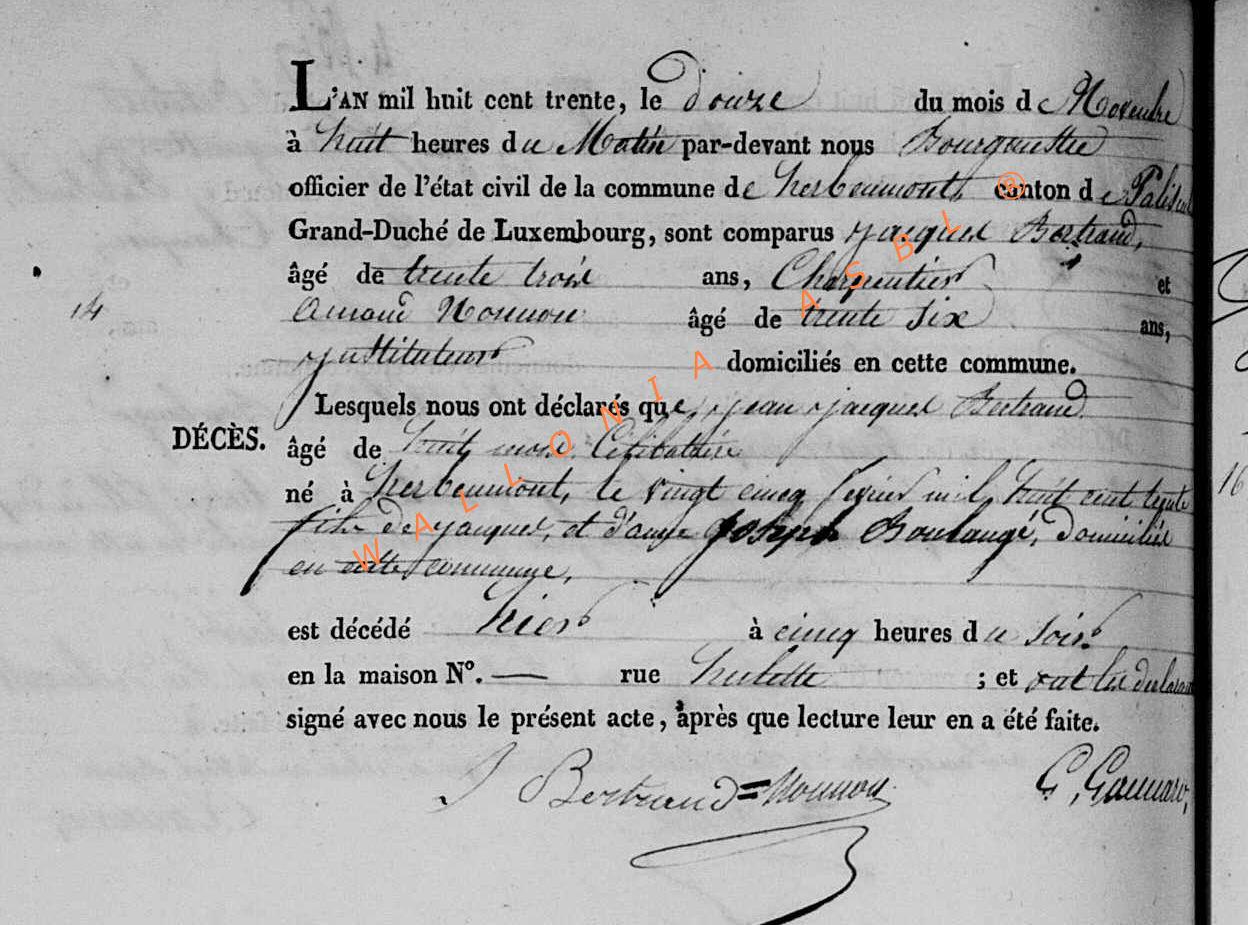 L'AN mil huit cent trente, le douze du mois de Novembre
à huit heures du Matin par-devant nous Bourguemestre
officier de l'état civil de la commune de herbeumont, canton de Paliseul
Grand-Duché de Luxembourg, sont comparus jacques Bertrand,
âgé de trente trois ans, Charpentier et
14 Nonnon âgé de trente Six ans,
jnstituteur domiciliés en cette commune.
Lesquels nous ont déclarés que, jean jacques Bertrand
DÉCÈS. âgé de huit mois Célibataire
né à herbeumont, le vingt cinq fevrier mil huit cent trente
fils de jacques, et d'anne joseph Boulangé, domiciliés
en cette commune,
est décédé hier à cinq heures du soir
en la maison N°. — rue hulette ; et ont les
signé avec nous le présent acte, après que lecture leur en a été faite.
J Bertrand = Nonnon G. Gannard,
16
WALLONIA ASBL ®